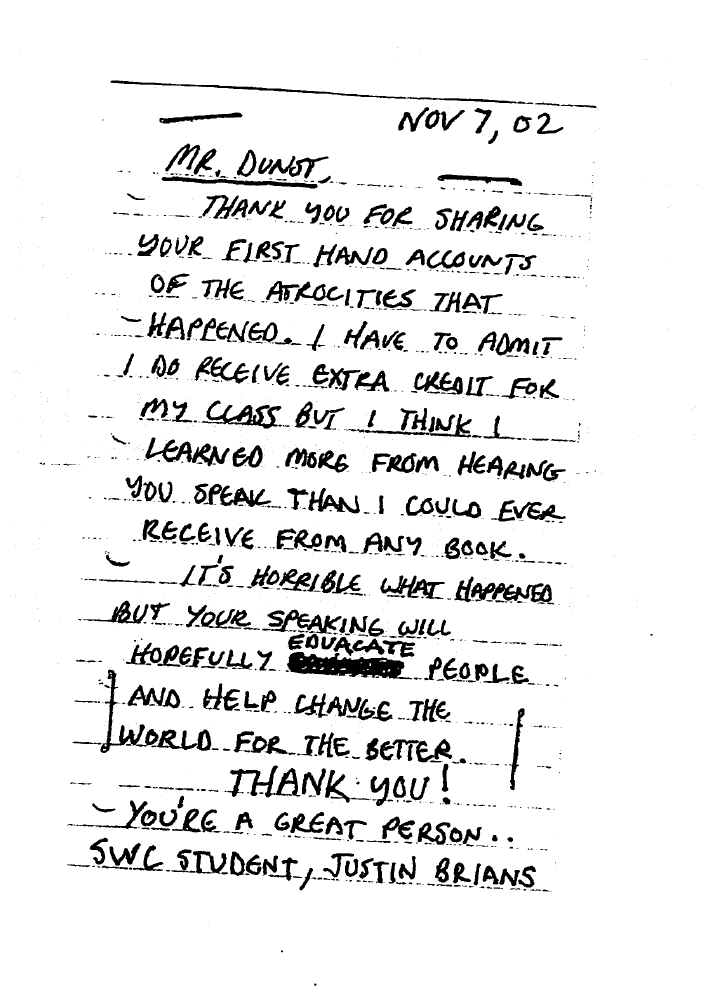 NOV 7, 02
MR. DUNST,
THANK YOU FOR SHARING
YOUR FIRST HAND ACCOUNTS
OF THE ATROCITIES THAT
HAPPENED. I HAVE TO ADMIT
I DO RECEIVE EXTRA CREDIT FOR
MY CLASS BUT I THINK I
LEARNED MORE FROM HEARING
YOU SPEAK THAN I COULD EVER
RECEIVE FROM ANY BOOK.
IT'S HORRIBLE WHAT HAPPENED
BUT YOUR SPEAKING WILL
HOPEFULLY EDUACATE PEOPLE
AND HELP CHANGE THE
WORLD FOR THE BETTER.
THANK YOU!
YOU'RE A GREAT PERSON..
SWC STUDENT, JUSTIN BRIANS